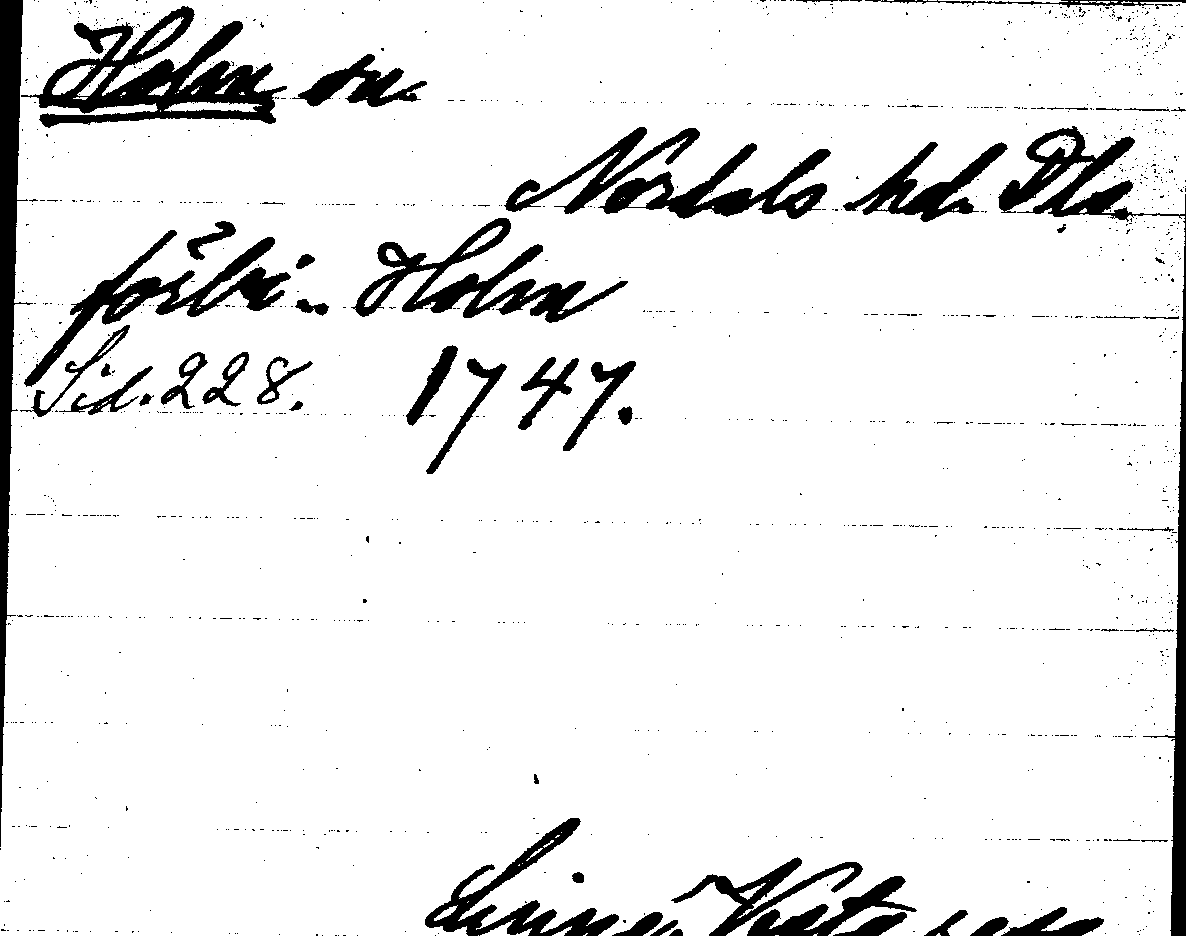 Holm sn.
Nordals hd. Dls.
förbi.. Holm
Sid. 228. 1747.
Linné, Västg. resa